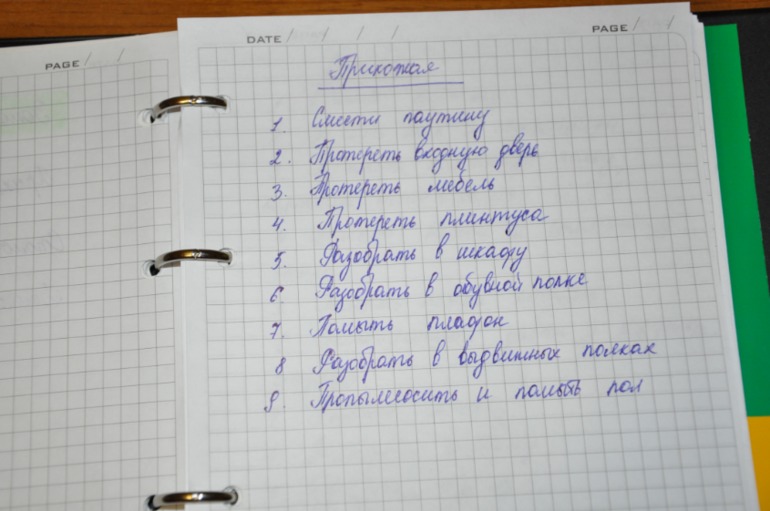 PAGE / /
DATE / / / / / PAGE / /
Прихожая
1. Смести паутину
2. Протереть входную дверь
3. Протереть мебель
4. Протереть плинтуса
5. Разобрать в шкафу
6. Разобрать в обувной полке
7. Помыть плафон
8 Разобрать в выдвижных полках
9. Пропылесосить и помыть пол